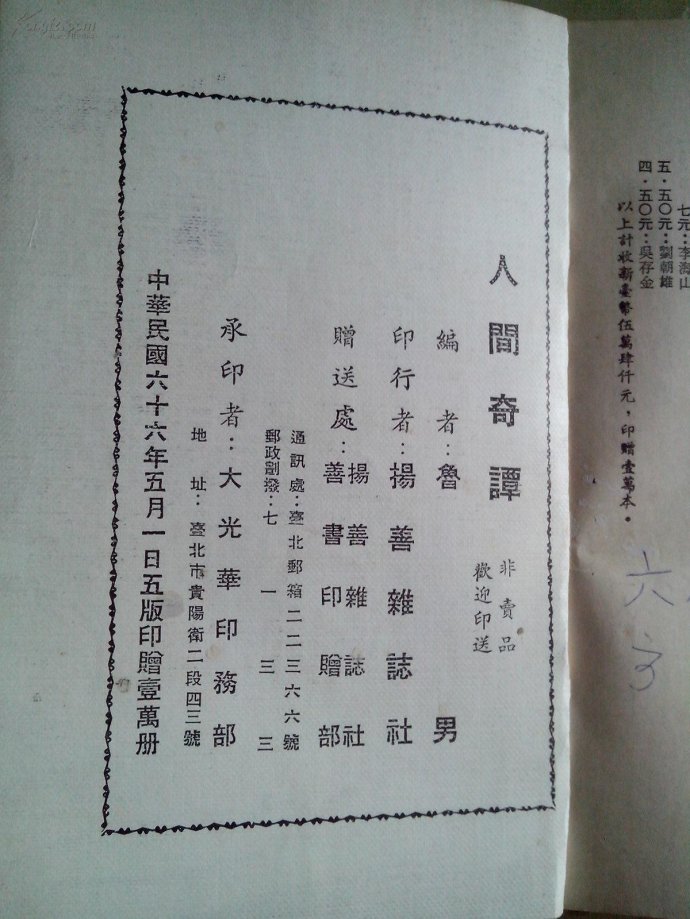 七元：李海山
五．五〇元：劉朝雄
四．五〇元：吳存金
以上計收新臺幣伍萬肆仟元，印贈壹萬本。
六
人間奇譚
非賣品
歡迎印送
編者：魯男
印行者：揚善雜誌社
贈送處：揚善雜誌社
善書印贈部
通訊處：臺北郵箱二二三六六號
郵政劃撥：七一三三三
承印者：大光華印務部
地址：臺北市貴陽街二段四三號
中華民國六十六年五月一日五版印贈壹萬册